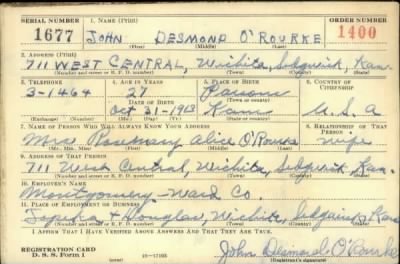 SERIAL NUMBER 1. NAME (Print) ORDER NUMBER
1677 JOHN DESMOND O'ROURKE 1400
(First) (Middle) (Last)
2. ADDRESS (Print)
711 WEST CENTRAL, Wichita, Sedgwick, Kan.
(Number and street or R. F. D. number) (Town) (County) (State)
3. TELEPHONE 4. AGE IN YEARS 5. PLACE OF BIRTH 6. COUNTRY OF CITIZENSHIP
3-1464 27 Parsons
DATE OF BIRTH (Town or county)
Oct 31-1913 Kan U. S. A
(Exchange) (No.) (Mo.) (Day) (Yr.) (State or country)
7. NAME OF PERSON WHO WILL ALWAYS KNOW YOUR ADDRESS 8. RELATIONSHIP OF THAT PERSON
Mrs Rosemary Alice O'Rourke wife
(Mr., Mrs., Miss) (First) (Middle) (Last)
9. ADDRESS OF THAT PERSON
711 West Central, Wichita, Sedgwick, Kan.
(Number and street or R. F. D. number) (Town) (County) (State)
10. EMPLOYER'S NAME
Montgomery-Ward Co
11. PLACE OF EMPLOYMENT OR BUSINESS
Topeka & Douglas, Wichita, Kans
(Number and street or R. F. D. number) (Town) (County) (State)
I AFFIRM THAT I HAVE VERIFIED ABOVE ANSWERS AND THAT THEY ARE TRUE.
REGISTRATION CARD
D. S. S. Form 1 16-17105 John Desmond O'Rourke
(Registrant's signature)